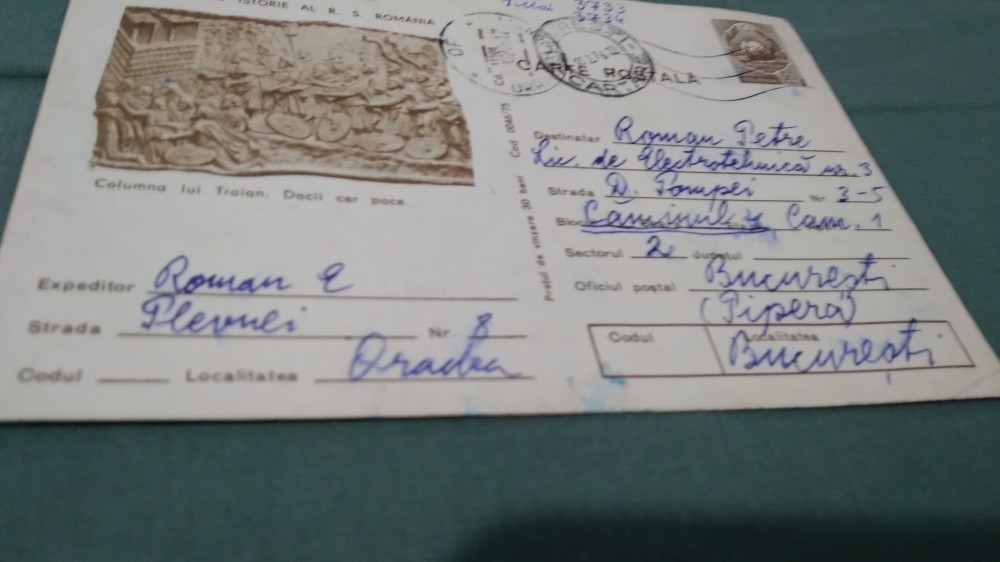 ISTORIE AL R. S. ROMANIA
3733
3734
CARTE POSTALĂ
Columna lui Traian. Dacii cer pace.
Prețul de vînzare 30 bani Cod 0046/73
Destinatar Roman Petre
Lic. de Electrotehnică nr. 3
Strada D. Pompei Nr. 3-5
Bloc Căminul Cam. 1
Sectorul 2 Județul
Oficiul poștal București
(Pipera)
Codul Localitatea
București
Expeditor Roman E
Strada Plevnei Nr. 8
Codul Localitatea Oradea